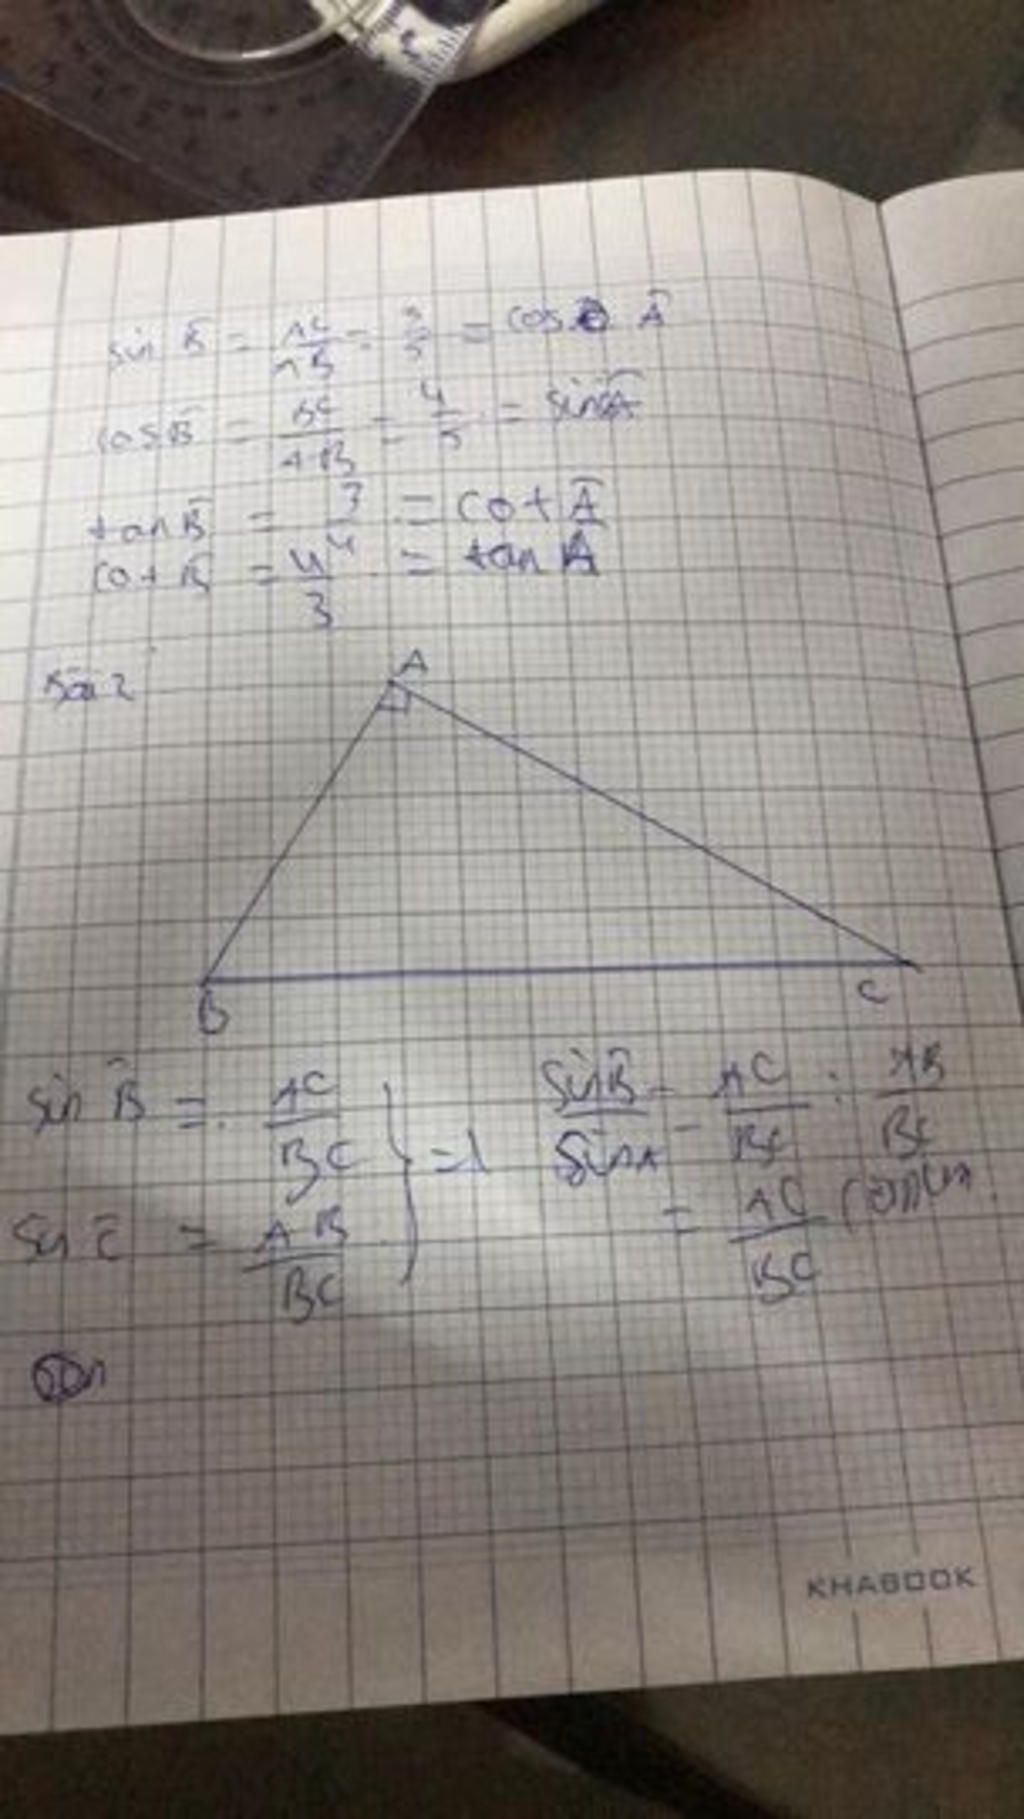 sin B̂ = AC/AB = 3/5 = cos Â
cos B̂ = BC/AB = 4/5 = sin Â
tan B̂ = 3/4 = cot Â
cot B̂ = 4/3 = tan A
Bài 2
A
B
C
sin B̂ = AC/BC
sin Ĉ = AB/BC
=> sin B̂/sin A = AC/BC : AB/BC
= AC/BC
KHABOOK